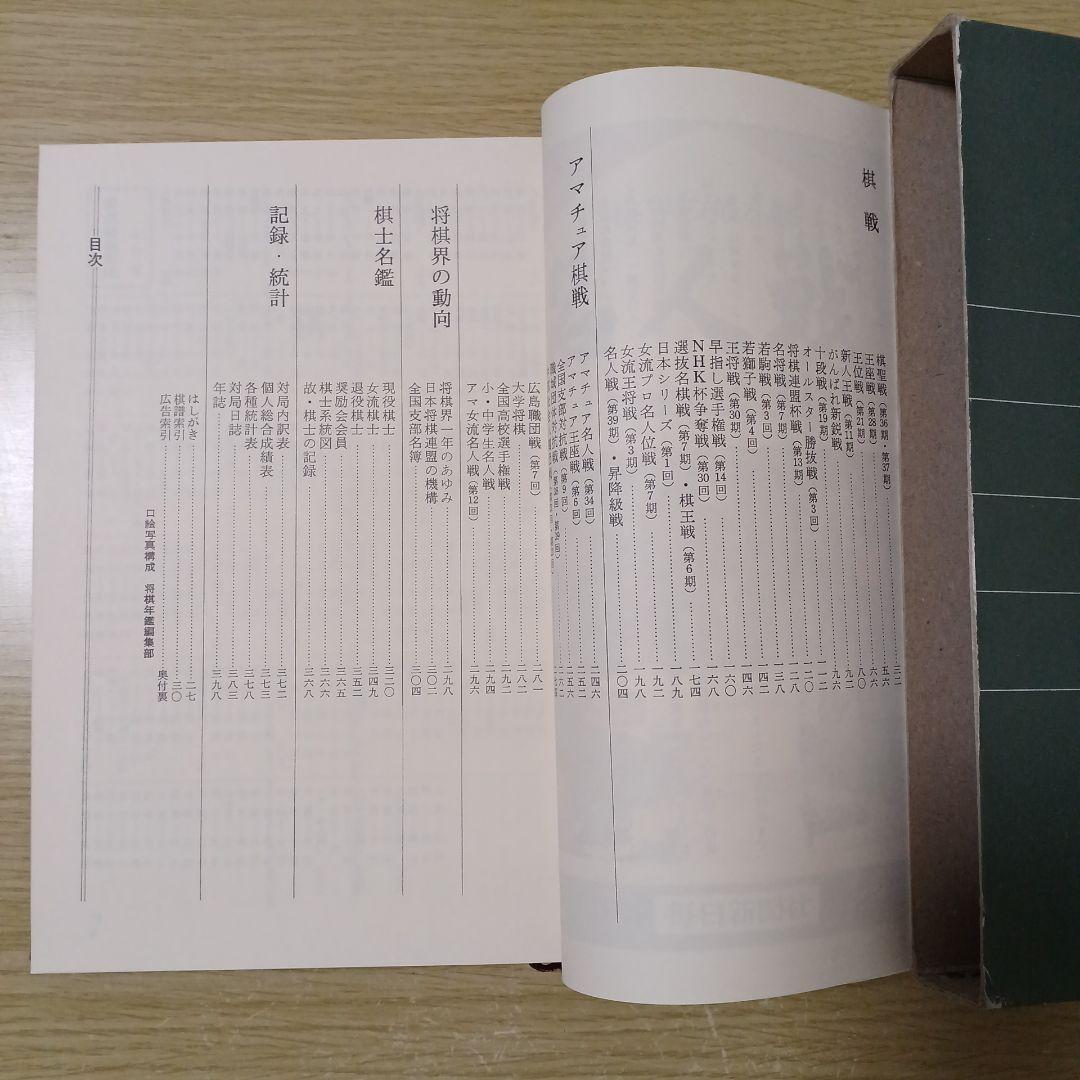 棋戦
棋聖戦(第36期・第37期)……三二
王座戦(第28期)……五六
王位戦(第21期)……六六
新人王戦(第11期)……八〇
がんばれ新鋭戦……九六
十段戦(第19期)……一一二
オールスター勝抜戦(第3回)
将棋連盟杯戦(第13期)……一二八
名将戦(第7期)……一三八
若駒戦(第3回)
若獅子戦(第4回)……一四六
王将戦(第30期)……一六〇
早指し選手権戦(第14回)……一六八
NHK杯争奪戦(第30回)……一七四
選抜名棋戦(第7期)・棋王戦(第6期)
日本シリーズ(第1回)
女流プロ名人位戦(第7期)
女流王将戦(第3期)
名人戦(第39期)・昇降級戦……二〇四
アマチュア棋戦
アマチュア名人戦(第34回)……二四六
アマチュア王座戦(第6回)……二五六
全国支部対抗戦(第9回)
職域団体対抗戦
広島職団戦(第7回)……二八一
大学将棋……二八二
全国高校選手権戦
小・中学生名人戦……二九四
アマ女流名人戦(第12回)……二九六
将棋界の動向
将棋界一年のあゆみ……二九八
日本将棋連盟の機構……三〇二
全国支部名簿……三〇四
棋士名鑑
現役棋士……三二〇
女流棋士……三四九
退役棋士……三五二
奨励会会員……三六五
棋士系統図……三六六
故・棋士の記録……三六八
記録・統計
対局内訳表……三七二
個人総合成績表……三七三
各種統計表……三七八
対局日誌……三八三
年誌……三九八
はしがき……二七
棋譜索引……三〇
広告索引……奥付裏
口絵写真構成 将棋年鑑編集部
目次